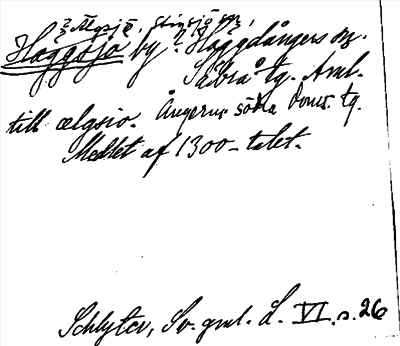 ? Älgsjö, Stigsjö sn,
Häggsjö by? Häggdångers sn.
Säbrå tg. Ånl.
till ælgsio. Ångerm. södra doms. tg.
Medlet af 1300-talet.
Schlyter, Sv. gml. L. VI. s. 26